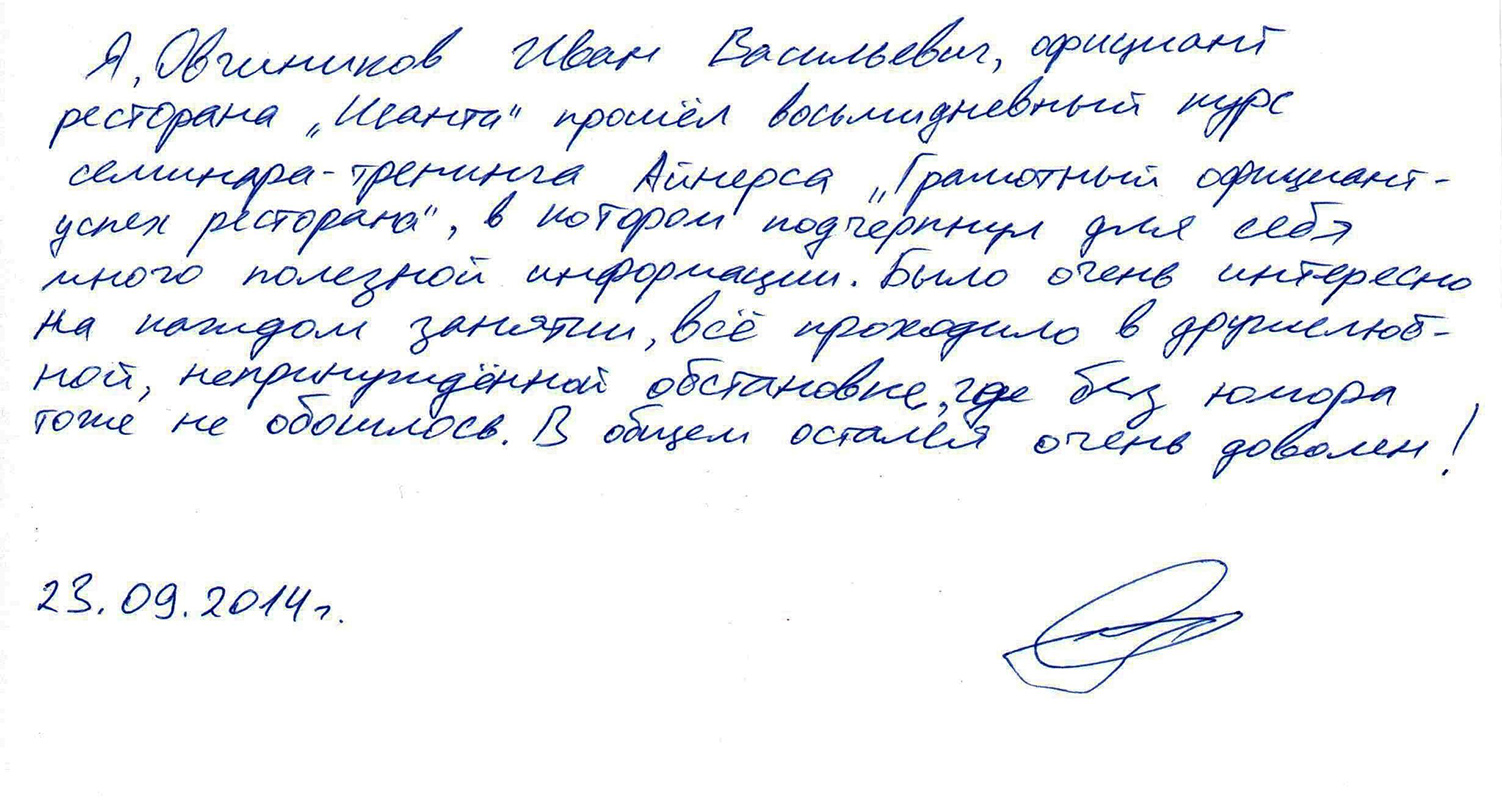 Я, Овчиников Иван Васильевич, официант
ресторана „Иванта" прошёл восьмидневный курс
семинара-тренинга Айнерса „Грамотный официант-
успех ресторана", в котором подчерпнул для себя
много полезной информации. Было очень интересно
на каждом занятии, всё проходило в дружелюб-
ной, непринуждённой обстановке, где без юмора
тоже не обошлось. В общем остался очень доволен!
23.09.2014г.